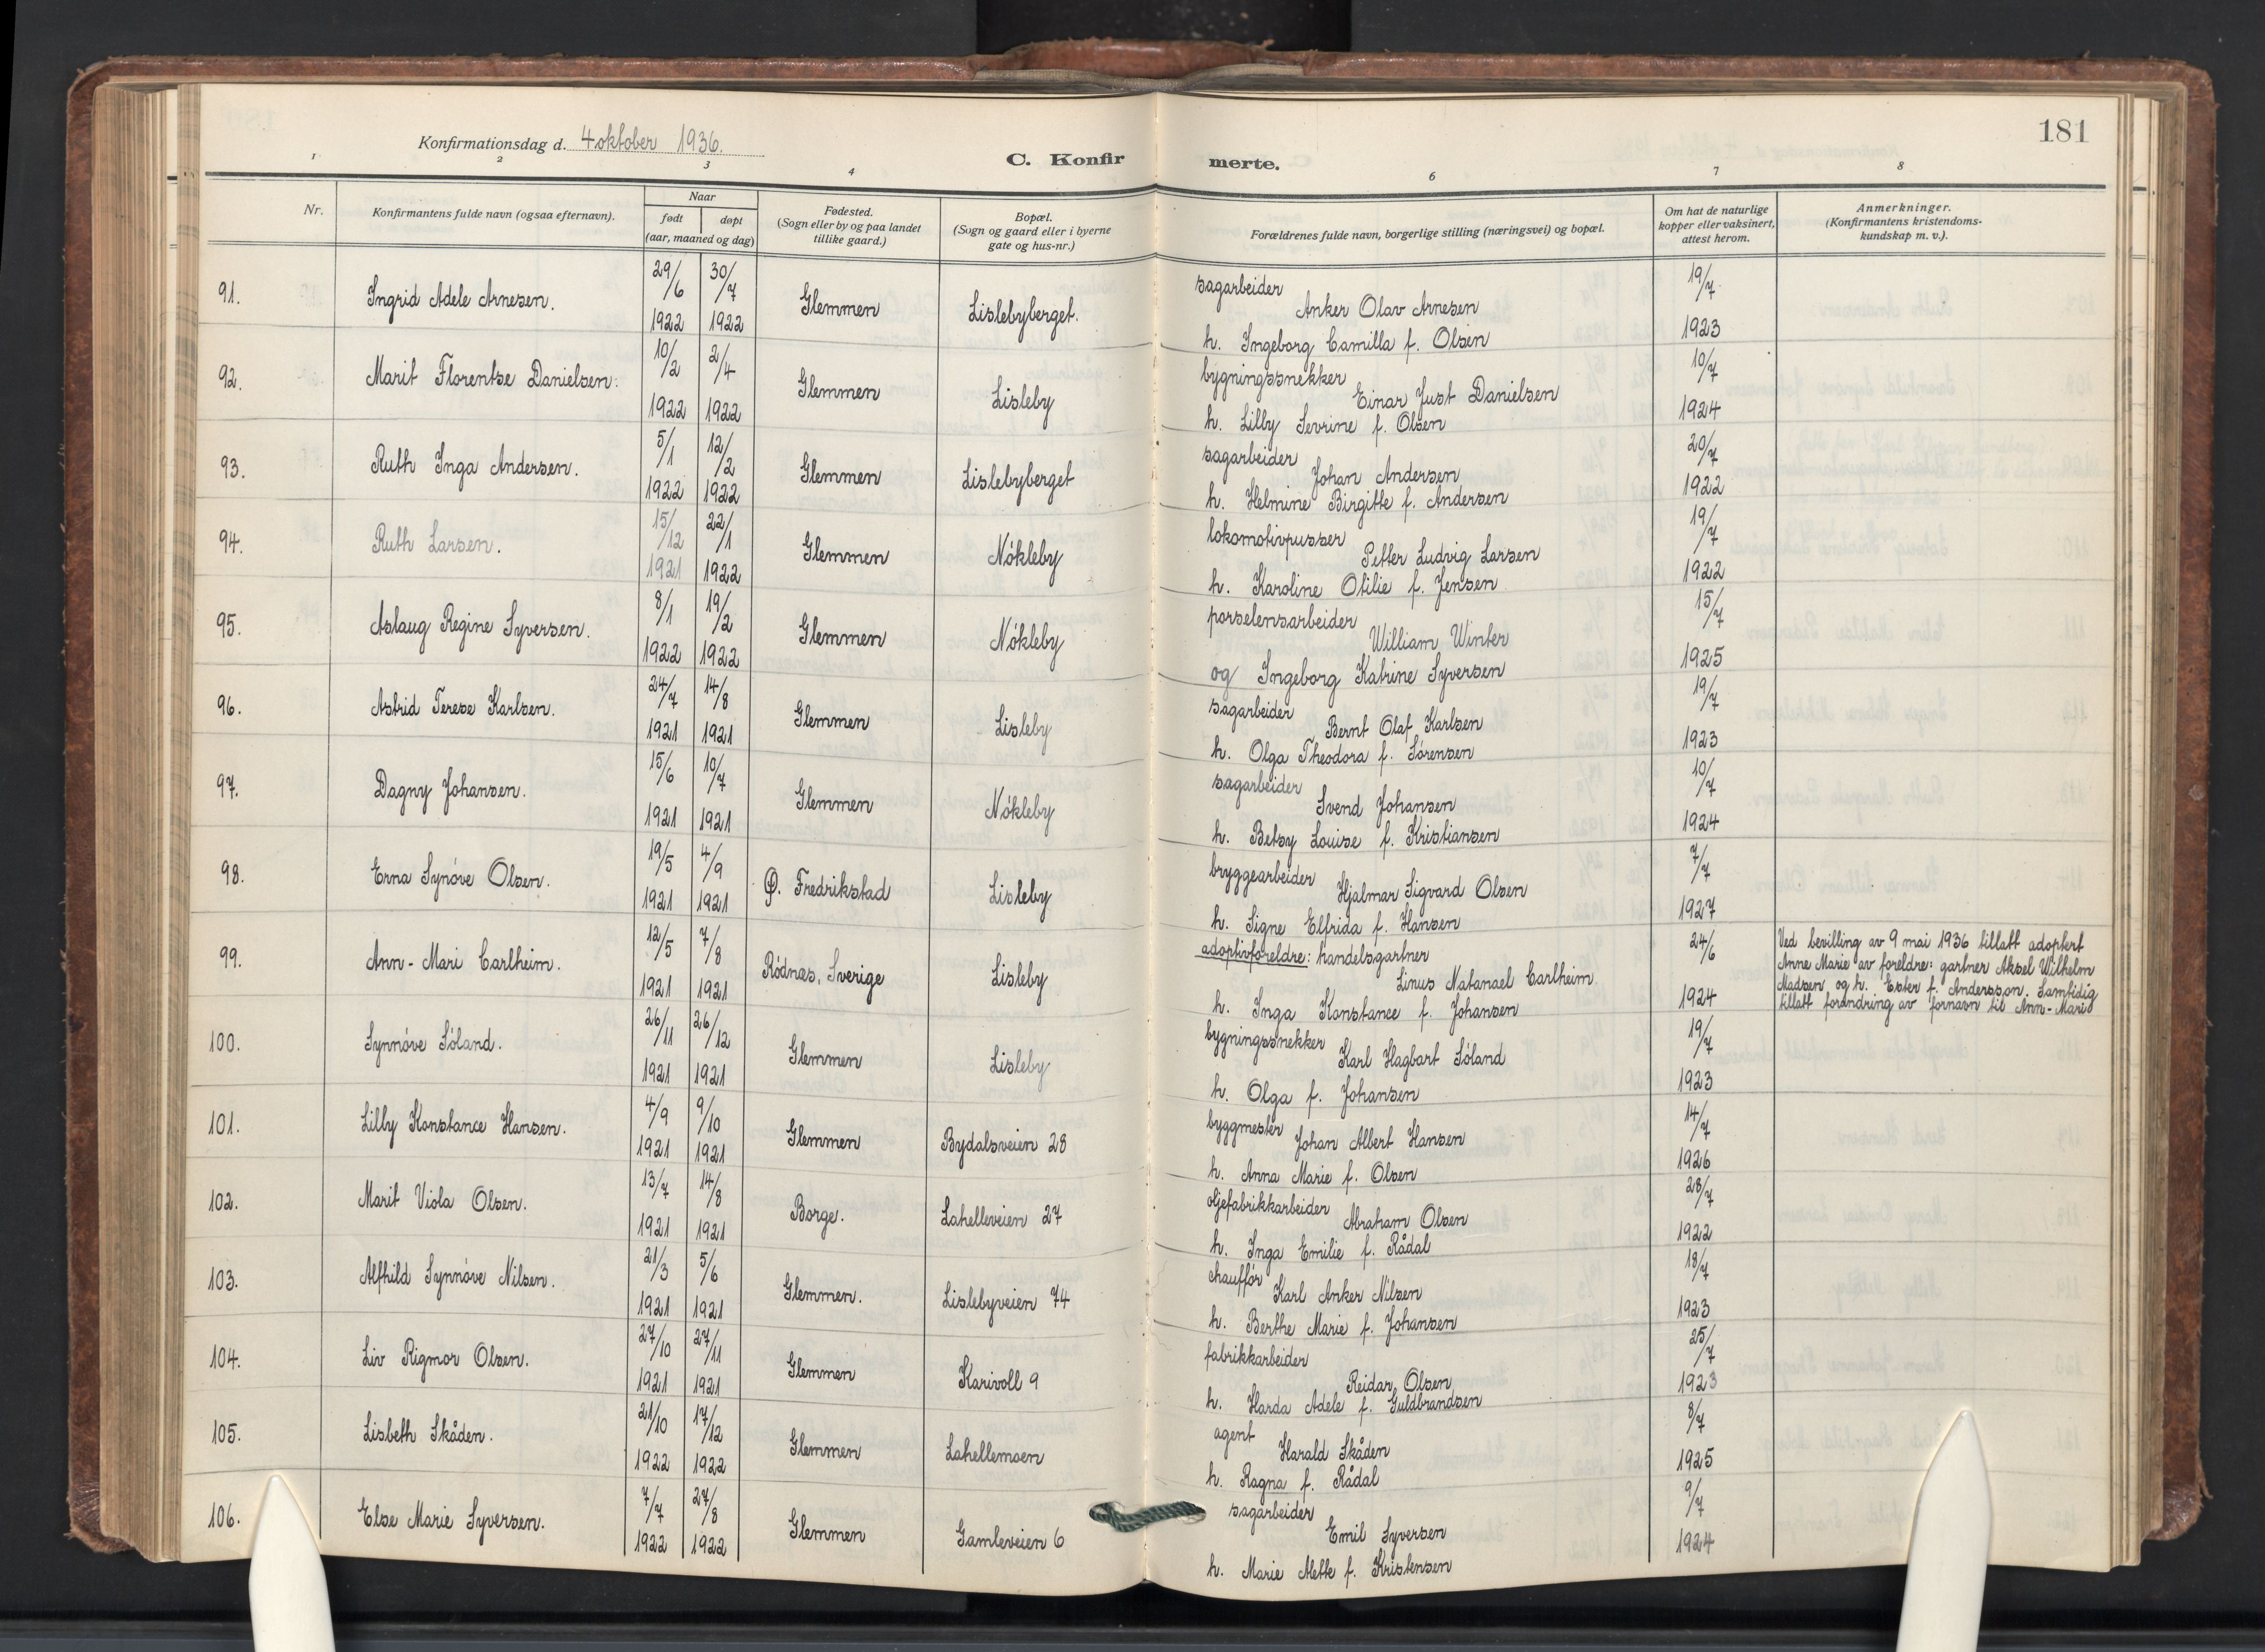 181
Konfirmationsdag d. 4 oktober 1936.
C. Konfirmerte.
1 2 3 4 6 7 8
Nr.
Konfirmantens fulde navn (ogsaa efternavn).
Naar
født
døpt
(aar, maaned og dag)
Fødested.
(Sogn eller by og paa landet
tillike gaard.)
Bopæl.
(Sogn og gaard eller i byerne
gate og hus-nr.)
Forældrenes fulde navn, borgerlige stilling (næringsvei) og bopæl.
Om hat de naturlige
kopper eller vaksinert,
attest herom.
Anmerkninger.
(Konfirmantens kristendoms-
kundskap m. v.).
91. Ingrid Adele Arnesen. 29/6 1922 30/7 1922 Glemmen Lislebyberget. sagarbeider
Anker Olav Arnesen
h. Ingeborg Camilla f. Olsen 19/7 1923
92. Marit Florentse Danielsen. 10/2 1922 2/4 1922 Glemmen Lisleby bygningssnekker
Einar Just Danielsen
h. Lilly Sevrine f. Olsen 10/7 1924
93. Ruth Inga Andersen. 5/1 1922 12/2 1922 Glemmen Lislebyberget sagarbeider
Johan Andersen
h. Helmine Birgitte f. Andersen 20/7 1922
94. Ruth Larsen. 15/12 1921 22/1 1922 Glemmen Nökleby lokomotivpusser
Petter Ludvig Larsen
h. Karoline Otilie f. Jensen 19/7 1922
95. Aslaug Regine Syversen. 8/1 1922 19/2 1922 Glemmen Nökleby porselensarbeider
William Winter
og Ingeborg Katrine Syversen 15/7 1925
96. Astrid Terese Karlsen. 24/7 1921 14/8 1921 Glemmen Lisleby sagarbeider
Bernt Olaf Karlsen
h. Olga Theodora f. Sörensen 19/7 1923
97. Dagny Johansen. 15/6 1921 10/7 1921 Glemmen Nökleby sagarbeider
Svend Johansen
h. Betsy Louise f. Kristiansen 10/7 1924
98. Erna Synöve Olsen. 19/5 1921 4/9 1921 Ø. Fredrikstad Lisleby bryggearbeider
Hjalmar Sigvard Olsen
h. Signe Elfrida f. Hansen 7/7 1927
99. Ann-Mari Carlheim. 12/5 1921 7/8 1921 Rödnæs, Sverige Lisleby adoptivforeldre: handelsgartner
Linus Natanael Carlheim.
h. Inga Konstance f. Johansen 24/6 1924
Ved bevilling av 9 mai 1936 tillatt adoptert
Anne Marie av foreldre: gartner Aksel Wilhelm
Madsen og h. Ester f. Andersson. Samtidig
tillatt forandring av fornavn til Ann-Mari
100. Synnöve Söland. 26/11 1921 26/12 1921 Glemmen Lisleby bygningssnekker
Karl Hagbart Söland
h. Olga f. Johansen 19/7 1923
101. Lilly Konstance Hansen. 4/9 1921 9/10 1921 Glemmen Bydalsveien 28 byggmester
Johan Albert Hansen
h. Anna Marie f. Olsen 14/7 1926
102. Marit Viola Olsen. 13/7 1921 14/8 1921 Borge. Lahelleveien 27 oljefabrikkarbeider
Abraham Olsen
h. Inga Emilie f. Rådal 28/7 1922
103. Alfhild Synnöve Nilsen. 21/3 1921 5/6 1921 Glemmen. Lislebyveien 74 chaufför
Karl Anker Nilsen
h. Berthe Marie f. Johansen 18/7 1923
104. Liv Rigmor Olsen. 27/10 1921 27/11 1921 Glemmen Karivoll 9 fabrikkarbeider
Reidar Olsen
h. Harda Adele f. Guldbrandsen 25/7 1923
105. Lisbeth Skåden. 21/10 1922 17/12 1922 Glemmen Lahellemoen agent
Harald Skåden
h. Ragna f. Rådal 8/7 1925
106. Else Marie Syversen. 7/7 1922 27/8 1922 Glemmen Gamleveien 6 sagarbeider
Emil Syversen
h. Marie Mette f. Kristensen 9/7 1924